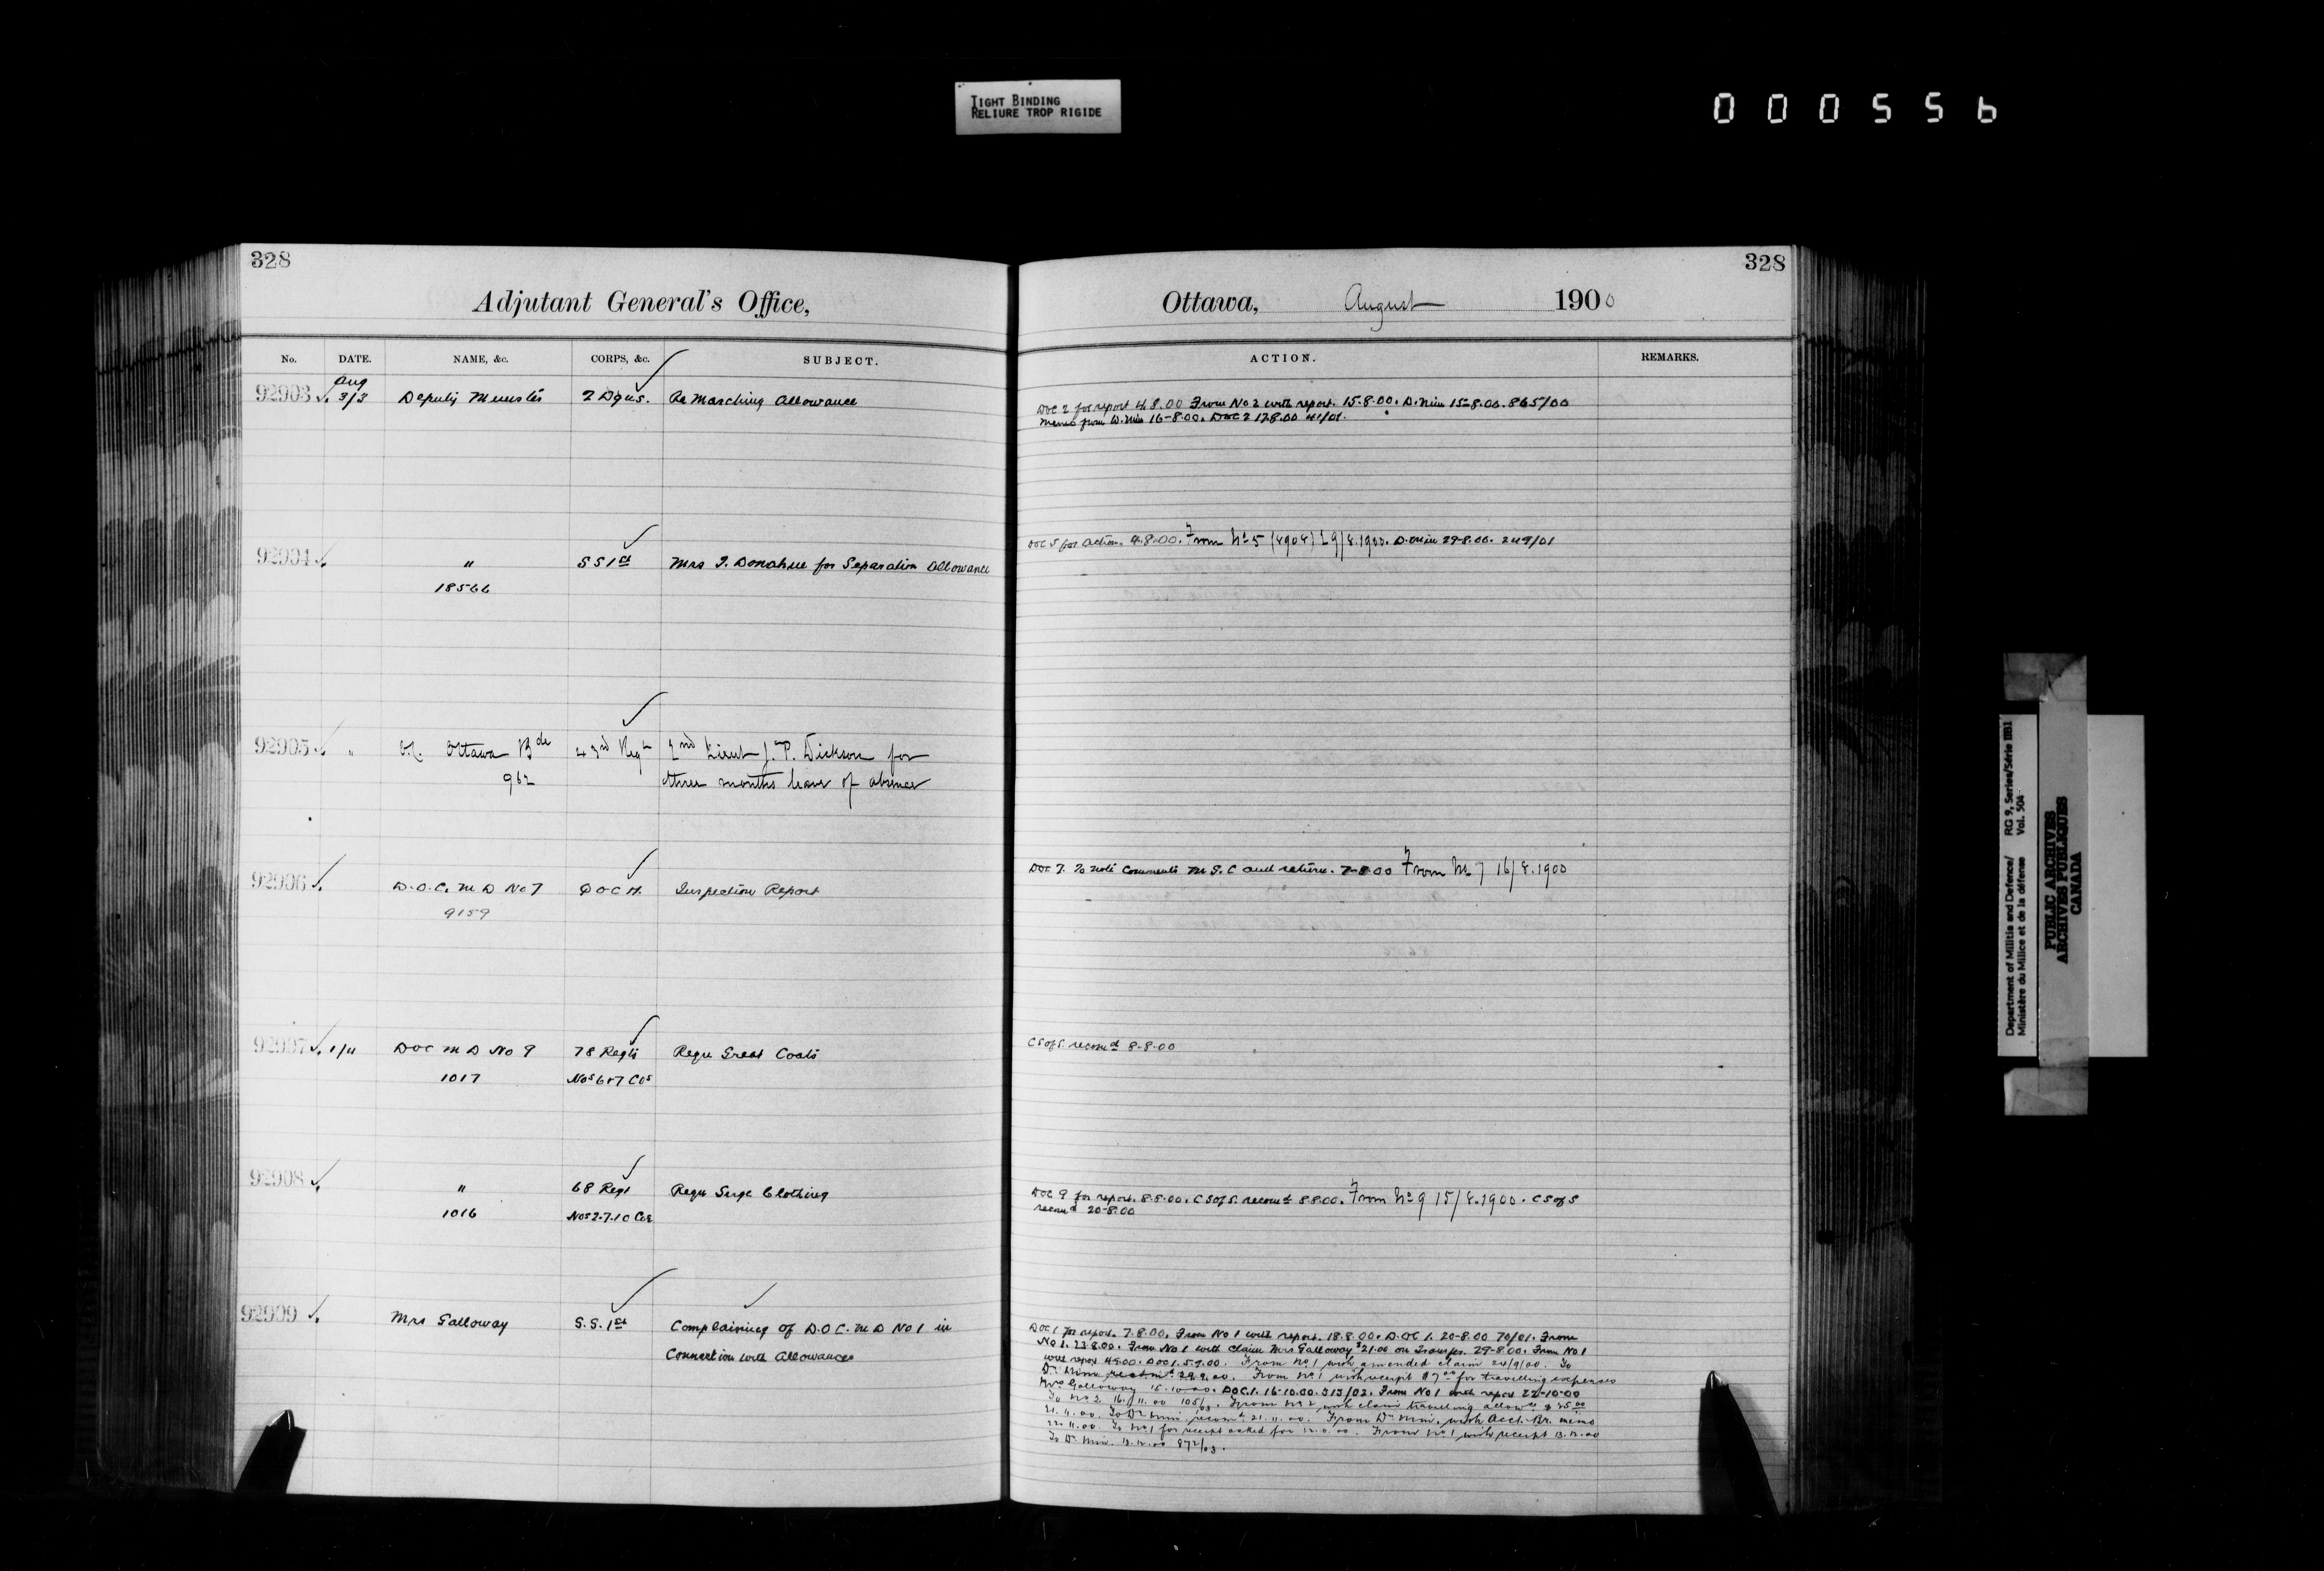 TIGHT BINDING
RELIURE TROP RIGIDE
000556
328
328
Adjutant General's Office,
Ottawa, August 1900
No. DATE. NAME, &c. CORPS, &c. SUBJECT.
ACTION. REMARKS.
Aug
92903 3/3 Deputy Minister 2 Dgns. Re Marching Allowance
DOC 2 for report 4.8.00 From No 2 with report. 15.8.00. D. Min 15-8.00. 865/00
Memo from D. Min 16-8.00. DOC 2 17.8.00
92904 " S S 1st Mrs Donahue for Separation Allowance
18566
DOC 5 for action. 4.8.00. From No 5 29/8.1900. D. Min 29-8.00. 249/01
92905 " Ottawa Bde 43rd Regt 2nd Lieut J. P. Dickson for
962 three months leave of absence
92906 D.O.C. M D No 7 Q O C H. Inspection Report
9159
DOC 7. To note comments M G. C and return. 7-8 00 From No 7 16/8.1900
92907 D O C M D No 9 78 Regt Requ Great Coats
1017 Nos 6 & 7 Cos
C S of S. recomd 8-8-00
92908 " 68 Regt Requ Serge Clothing
1016 Nos 2.7.10 Cos
DOC 9 for report. 8.8.00. C S of S. recomd 8 8.00. From No 9 15/8.1900. C S of S
recomd 20-8.00
92909 Mrs Galloway S.S. 1st Complaining of D.O C. M D No 1 in
Connection with Allowances
DOC 1 for report. 7.8.00. From No 1 with report. 18.8.00. D.OC 1. 20-8.00 70/01. From
No 1. 23.8.00. From No 1 with claim Mrs Galloway $21.00 on Transfer. 29-8.00. From No 1
with report 4.9.00. DOC 1. 5.9.00. From No 1 with amended claim 24/9/00. To
Dr. Minr 29.9.00. From No 1 with receipt for travelling expenses
Mrs Galloway 15.10.00. DOC. 1. 16-10.00. 313/02. From No 1 with report 22-10-00
To No 2 16/11.00 105/03. From No 2 with claim travelling allowce
21.11.00. To Dr. Min. recomd. 21.11.00. From Dr. Min. with Acct. Br. memo
22.11.00. To No 1 for receipt asked for From No 1 with receipt 13.12.00
To Dr. Min. 13.12.00 872/03.
Department of Militia and Defence/ RG 9, Series/Série IIB1
Ministère du Milice et de la défense Vol. 504
PUBLIC ARCHIVES
ARCHIVES PUBLIQUES
CANADA